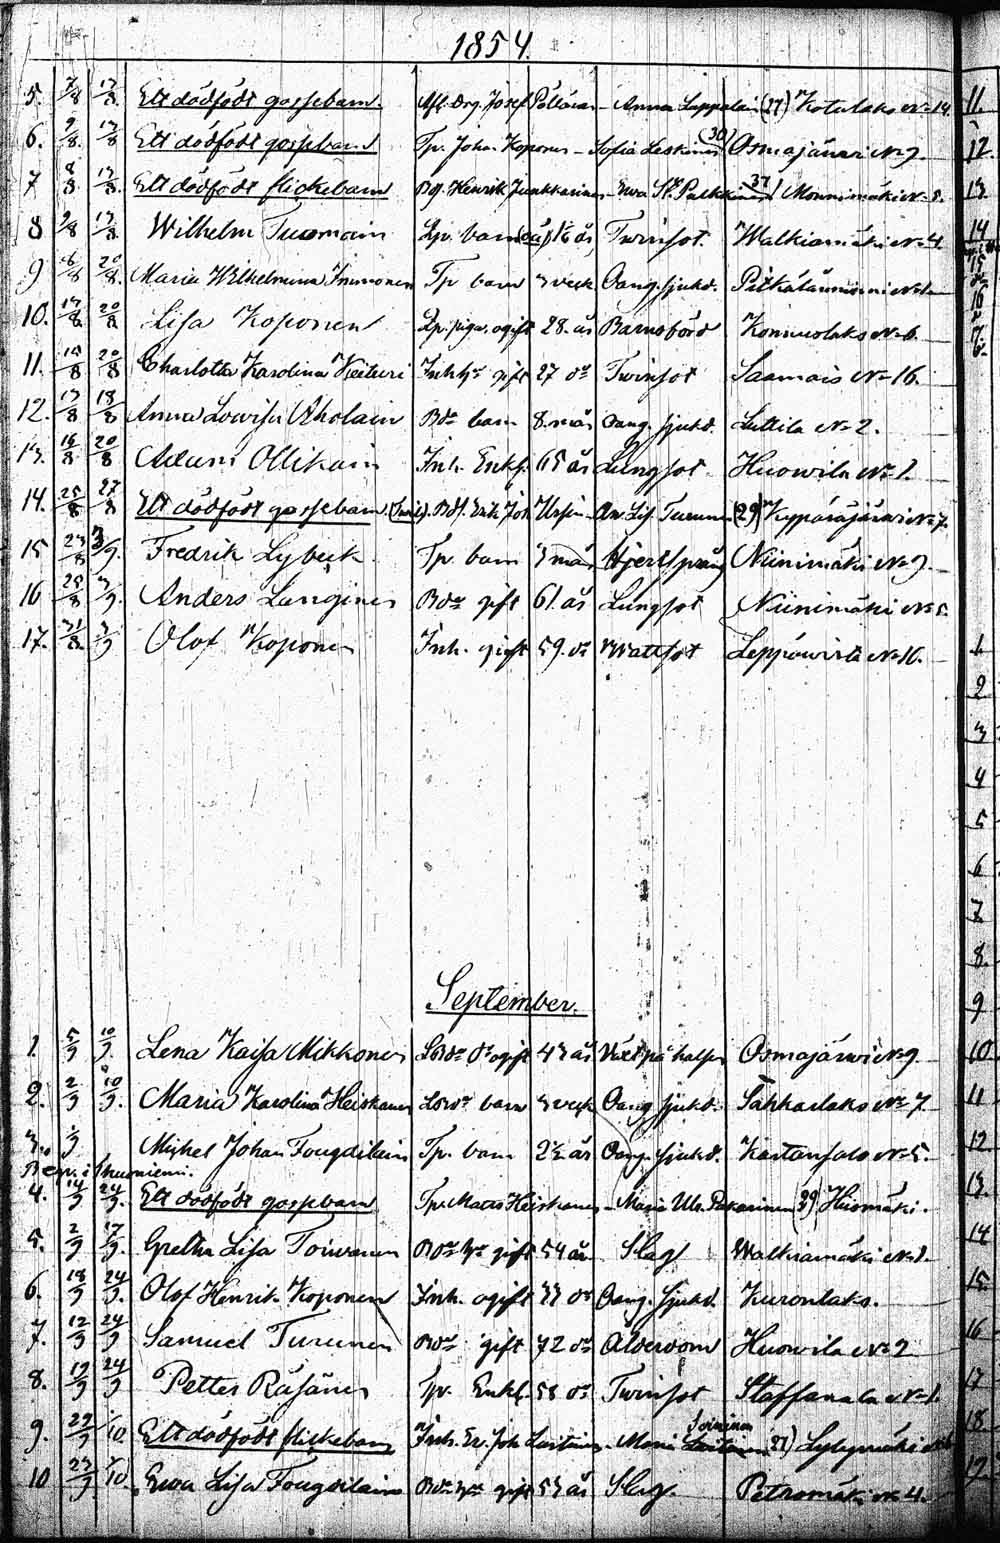 1854.
5. 7/8 13/8. Ett dödfödt gossebarn. Afsk. Drg. Josef Pöllänen – Anna Lappalain (27) Kotalaks No 14.
6. 9/8 13/8 Ett dödfödt gossebarn Tp. Johan Koponen – Sofia Leskinen (30) Osmajärwi No 9.
7 8/8 13/8. Ett dödfödt flickebarn Bd. Henrik Junkkarinen – Ewa St. Pulkkinen 37 Monnimäki No 8.
8 9/8 13/8 Wilhelm Tuomain Lp. barn 1 1/6 år Twinsot. Walkiamäki No 4.
9 16/8 20/8. Maria Wilhelmina Immonen Tp barn 3 veck Oang. sjukd. Pitkälänniemi No 1.
10. 17/8 20/8 Lisa Koponen Lp. piga. ogift 28. år Barnsbörd Konnuslaks No 6.
11. 15/8 20/8 Charlotta Karolina Keituri Inh. hu gift 27 do Twinsot Saamais No 16.
12. 13/8 18/8 Anna Lowisa Aholain Bdr barn 8. mån Oang. sjukd. Luttila No 2.
13. 16/8 20/8 Adam Ollikain Inh. Enkl. 65 år Lungsot Huowila No 1.
14. 25/8 27/8 Ett dödfödt gossebarn An. Lis. Turunen (29) Kypäräjärwi No 7.
15 23/8 3/9. Fredrik Lybeck Tp. barn 3 mån Hjertsprång Niinimäki No 9.
16 28/8 3/9. Anders Langinen Bdr gift 61. år Lungsot Niinimäki No 5.
17. 31/8. 3/9 Olof Koponen Inh. gift 59. do Wattsot Leppäwirta No 16.
September.
1. 5/9 10/9. Lena Kaisa Mikkonen ogift 43 år Växt på halsen Osmajärwi No 9
2. 2/9 10/9. Maria Karolina Heiskanen barn 3 veck Oang sjukd. Sahkarlaks No 7
3. Michel Johan Fougdilain Tp. barn 2 1/2 år Oang. sjukd. Kartansalo No 5.
Begr. i
4. 14/9 24/9. Ett dödfödt gossebarn Tp. Matts Heiskanen – Maria Ulr. Pakarinen (29) Hiismäki.
5. 2/9 17/9. Gretha Lisa Toiwanen Bdr hu gift 54 år Slag Walkiamäki No 1.
6. 18/9 24/9. Olof Henrik Koponen Inh. ogift 33 do Oang. sjukd. Kuronlaks.
7. 12/9 24/9 Samuel Turunen Bdr gift 72 do Ålderdom Huowila No 2
8. 19/9 24/9 Petter Räsänen Tp. Enkl. 58 do Twinsot Staffanala No 1.
9. 29/9 1/10 Ett dödfödt flickebarn Inh. Er. Joh Laitinen – Maria Soininen
10 23/9 1/10 Ewa Lisa Fougdilain Bdr hu gift 53 år Slag. Petromäki No 4.
11.
12
13.
14
1.
2
3
4
5
6
7
8.
9
10
11
12
13.
14
15.
16
17
18
19